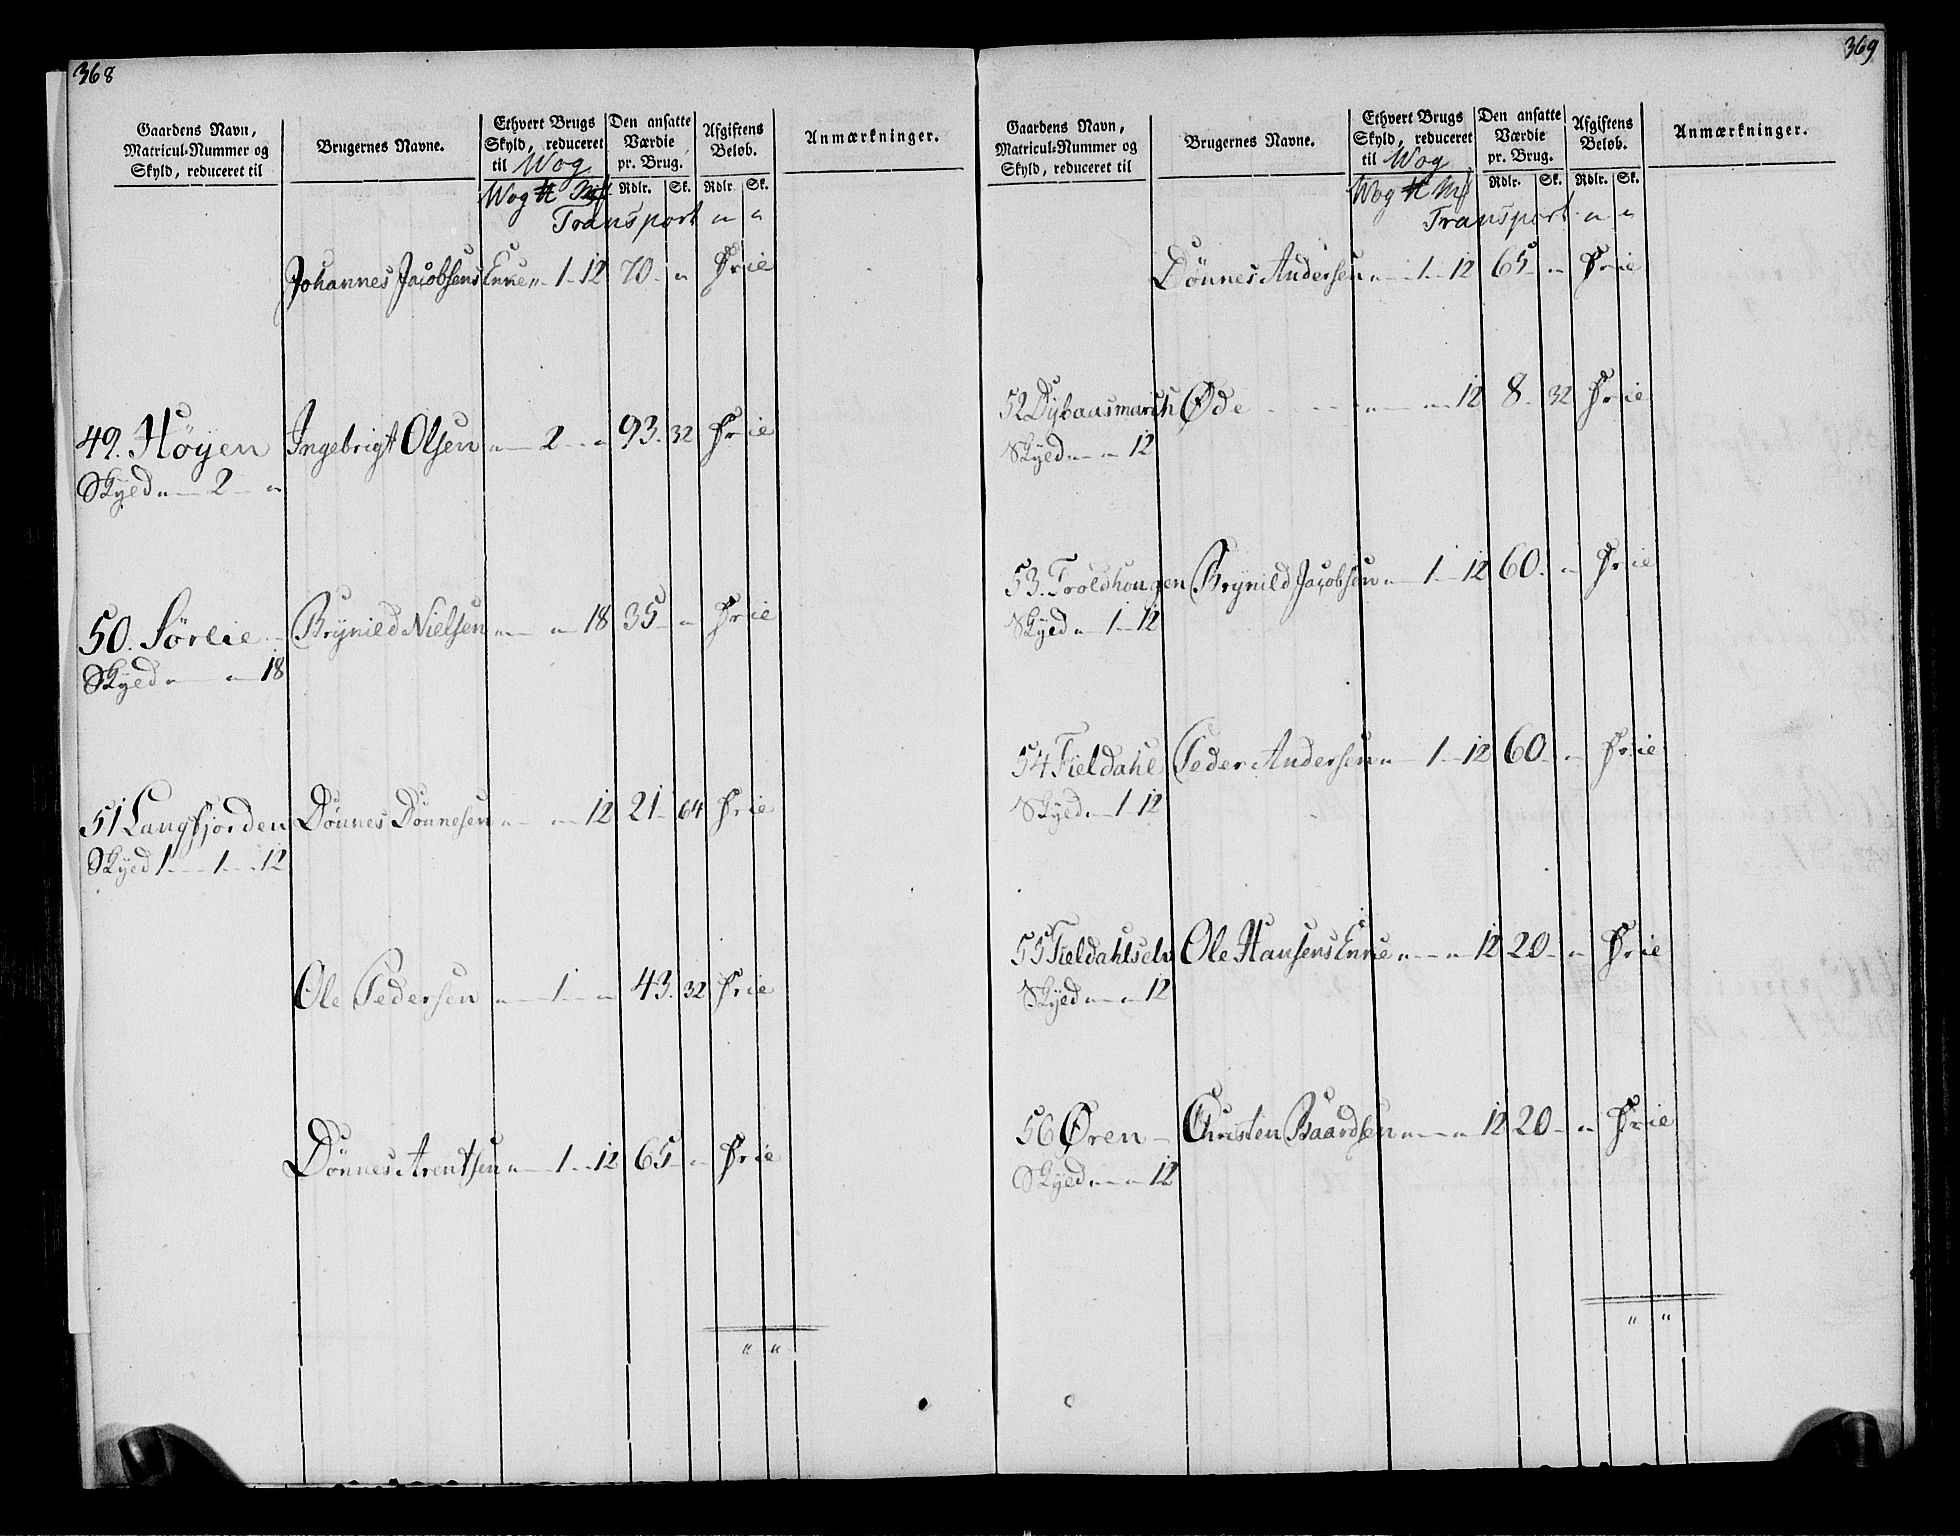 368
Gaardens Navn,
Matricul-Nummer og
Skyld, reduceret til
Brugernes Navne.
Ethvert Brugs
Skyld, reduceret
til Wog
Wog ℔ Mk
Den ansatte
Værdie
pr. Brug.
Rdlr. Sk.
Afgiftens
Beløb.
Rdlr. Sk.
Anmærkninger.
Transport " "
Johannes Jacobsens Enke " - 1 - 12 70 - " Frie
49. Høyen Ingebrigt Olsen " - 2 - " 93. 32 Frie
Skyld " - 2 - "
50. Sørlie - Brynild Nielsen " - " - 18 35 - " Frie
Skyld " - " - 18
51 Langfjorden Dönnes Dönnesen " - " - 12 21 - 64 Frie
Skyld 1 - 1 - 12
Ole Pedersen " - 1 - " 43. 32 Frie
Dönnes Arentsen " - 1 - 12 65 - " Frie
" "
369
Gaardens Navn,
Matricul-Nummer og
Skyld, reduceret til
Brugernes Navne.
Ethvert Brugs
Skyld, reduceret
til Wog
Wog ℔ Mk
Den ansatte
Værdie
pr. Brug.
Rdlr. Sk.
Afgiftens
Beløb.
Rdlr. Sk.
Anmærkninger.
Transport " "
Dönnes Andersen " - 1 - 12 65 - " Frie
52 Øde " - " - 12 8 - 32 Frie
Skyld " - " 12
53. Troldhougen Brynild Jacobsen " - 1 - 12 60 - " Frie
Skyld " - 1 - 12
54 Fieldahl Peder Andersen " - 1 - 12 60 - " Frie
Skyld " - 1 - 12
55 Fieldahlselv Ole Hansens Enke " - " - 12 20 - " Frie
Skyld " - " - 12
56 Øren - Christen Baardsen " - " 12 20 - " Frie
Skyld " - " - 12
" "